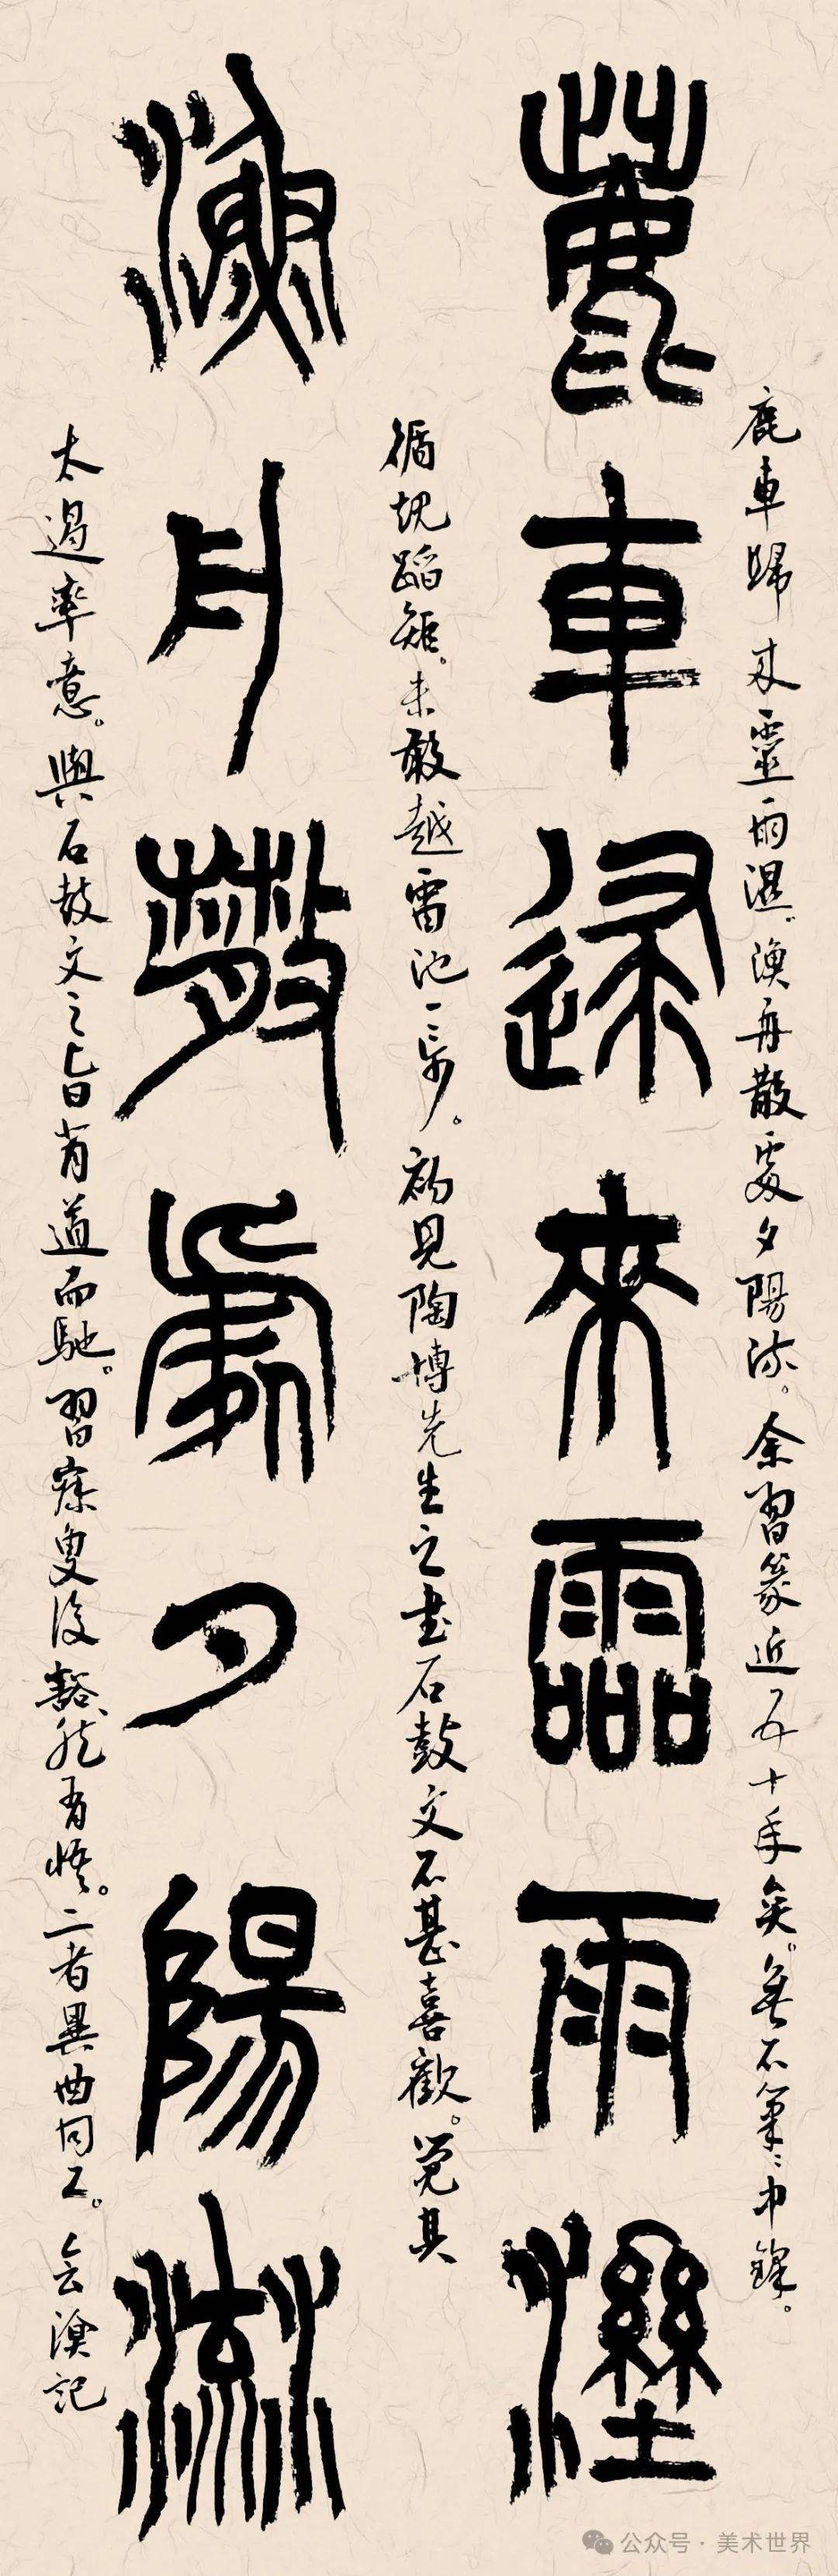 鹿車歸來靈雨溼
鹿車歸來靈雨濕。漁舟散處夕陽流。余習篆近五十年矣。無不筆筆中鋒。
循規蹈矩。未敢越雷池一步。初見陶博先生之書石鼓文不甚喜歡。覺其
漁舟散處夕陽流
太過率意。與石鼓文之旨背道而馳。習寐叟後豁然有悟。二者異曲同工。
公众号·美术世界